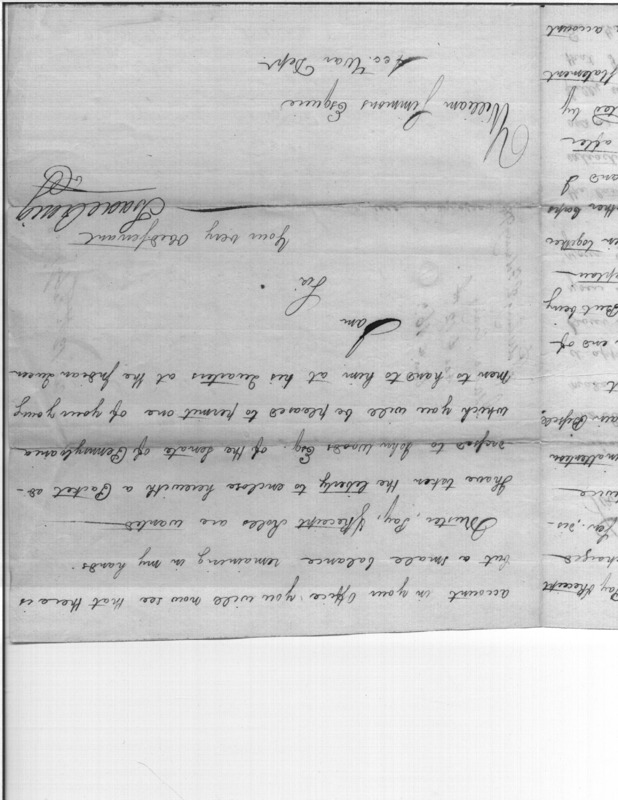 account in your Office you will now see that there is
but a small balance remaining in my hands.
Muster, Pay, & Receipt Rolls are wanted
I have taken the liberty to enclose herewith a Packet ad-
dressed to John Woods Esq. of the Senate of Pennsylvania
which you will be pleased to permit one of your young
men to hand to him at his Quarters at the Indian Queen
I am
Sir
Your very Obed Servant
Isaac Craig
William Simmons Esquire
Acc. War Dept.
Pay & Receipt
charged
attention
But being
together
and I
after
by
Statement
account